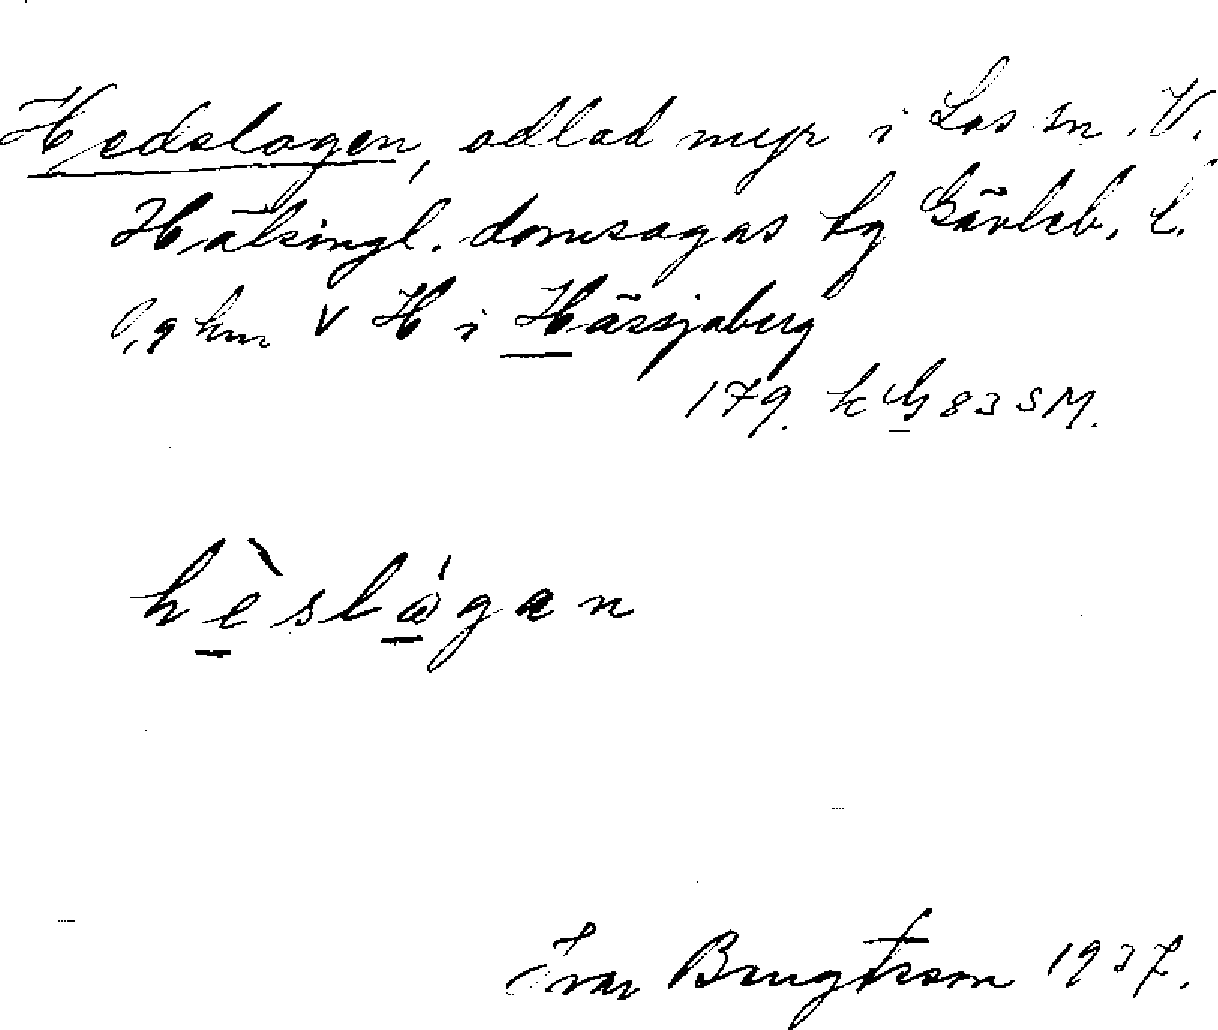 Hedslogen, odlad myr i Los sn. V.
Hälsingl. domsagas tg Gävleb. l.
0,9 km V H i Hässjaberg
179. k G 83 SM.
hèslògen
Ivar Bengtsson 1937.